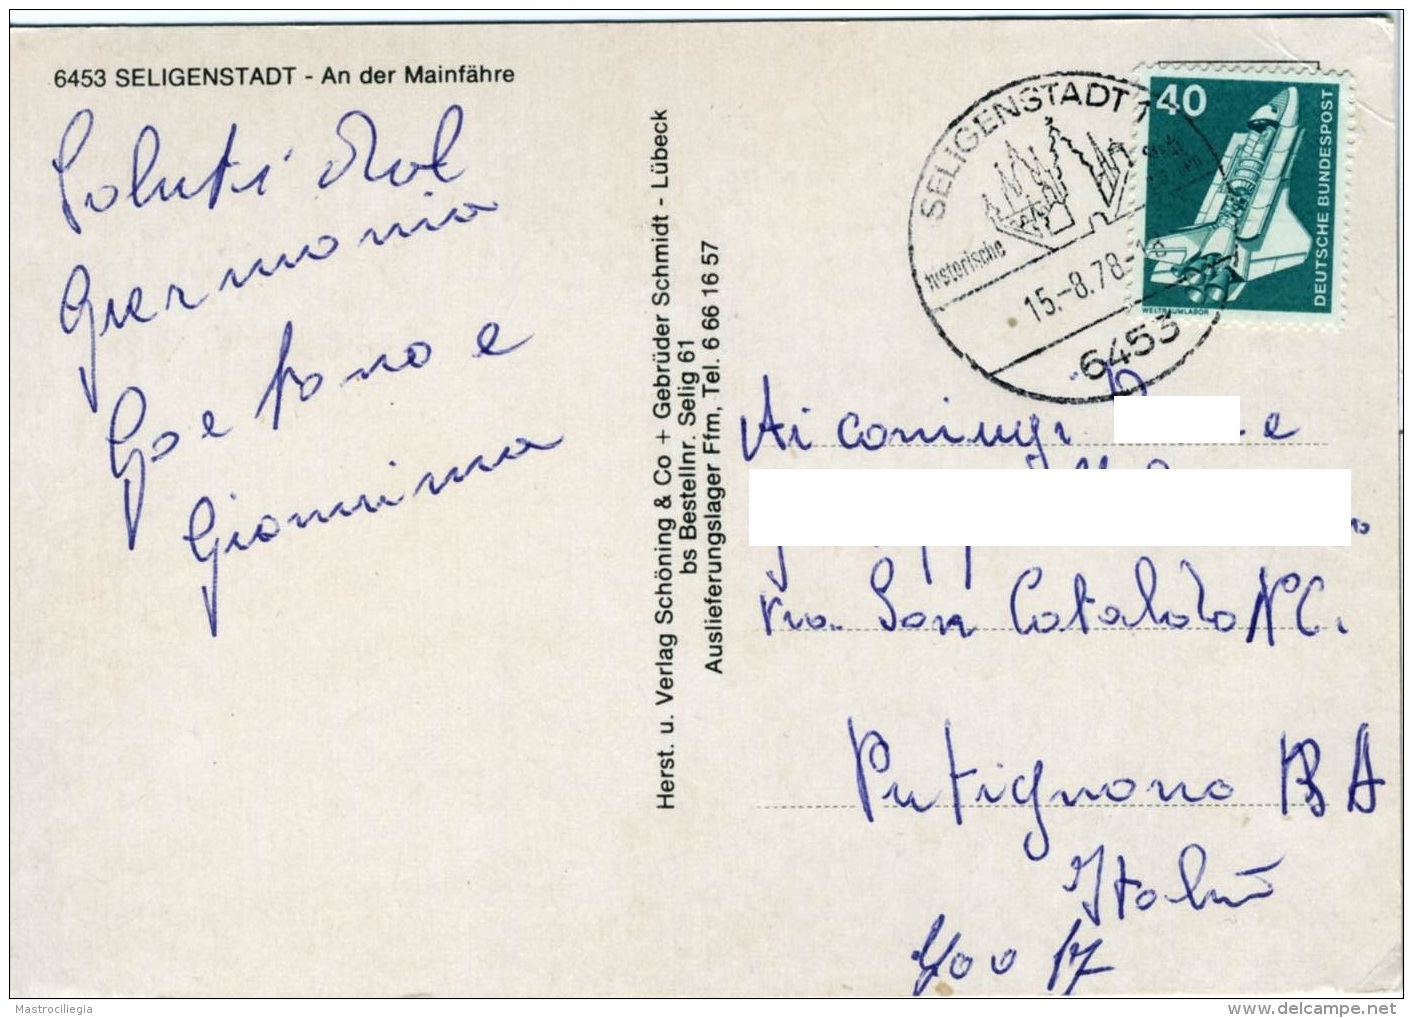 6453 SELIGENSTADT - An der Mainfähre
Saluti dal
Germania
Gaetano e
Giannina
Herst. u. Verlag Schöning & Co + Gebrüder Schmidt - Lübeck
bs Bestellnr. Selig 61
Auslieferungslager Ffm, Tel. 6 66 16 57
SELIGENSTADT 1
historische
15.-8.78-18
6453
40
DEUTSCHE BUNDESPOST
WELTRAUMLABOR
Ai coniugi
e
via San Cataldo N.C.
Putignano BA
Italia
70017
Mastrociliegia
www.delcampe.net